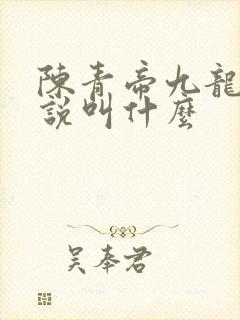 陳青帝九龍
說叫什麼
吳奉君